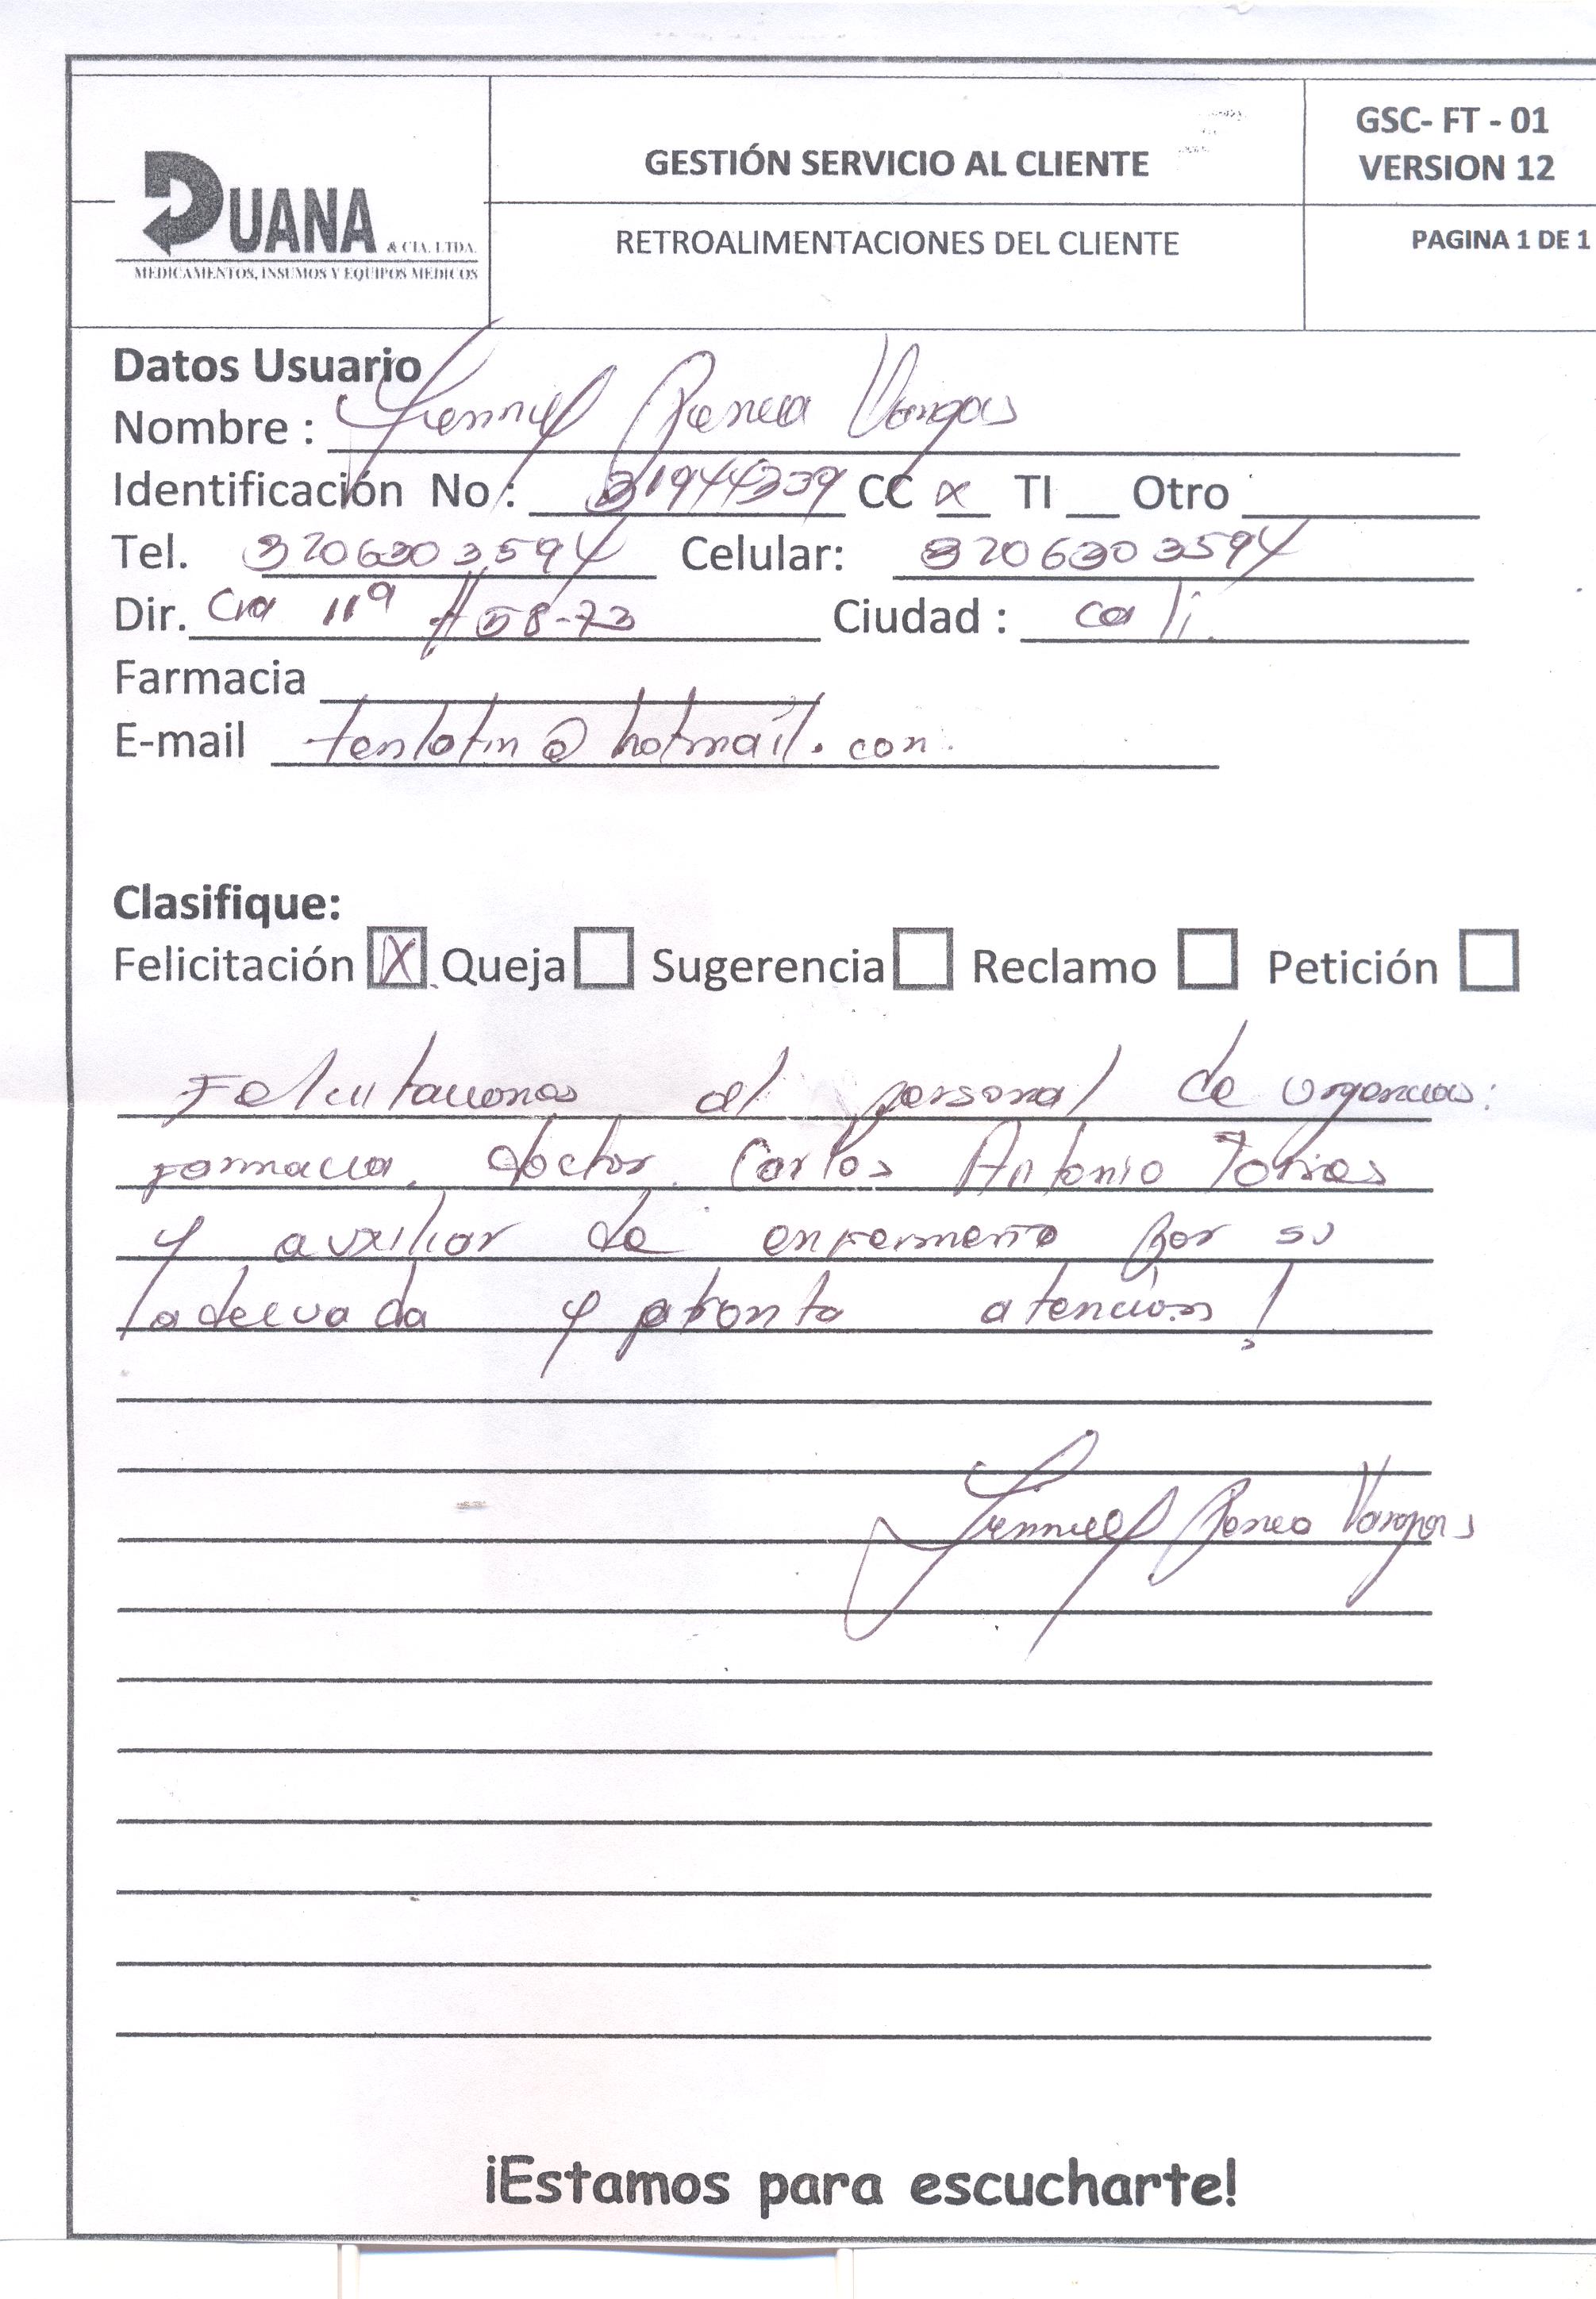 DUANA & CIA. LTDA.
MEDICAMENTOS, INSUMOS Y EQUIPOS MEDICOS
GESTIÓN SERVICIO AL CLIENTE
RETROALIMENTACIONES DEL CLIENTE
GSC- FT - 01
VERSION 12
PAGINA 1 DE 1
Datos Usuario
Nombre : Vargas
Identificación No : 31944339 CC x TI __ Otro
Tel. 3206303594 Celular: 3206303594
Dir. Cra 11a # 58-73 Ciudad : cali.
Farmacia
E-mail @hotmail.com
Clasifique:
Felicitación X Queja Sugerencia Reclamo Petición
Felicitaciones al personal de urgencias:
Farmacia, doctor Carlos Antonio Torres
y auxiliar de enfermeria por su
adecuada y pronta atención!
Vargas
¡Estamos para escucharte!